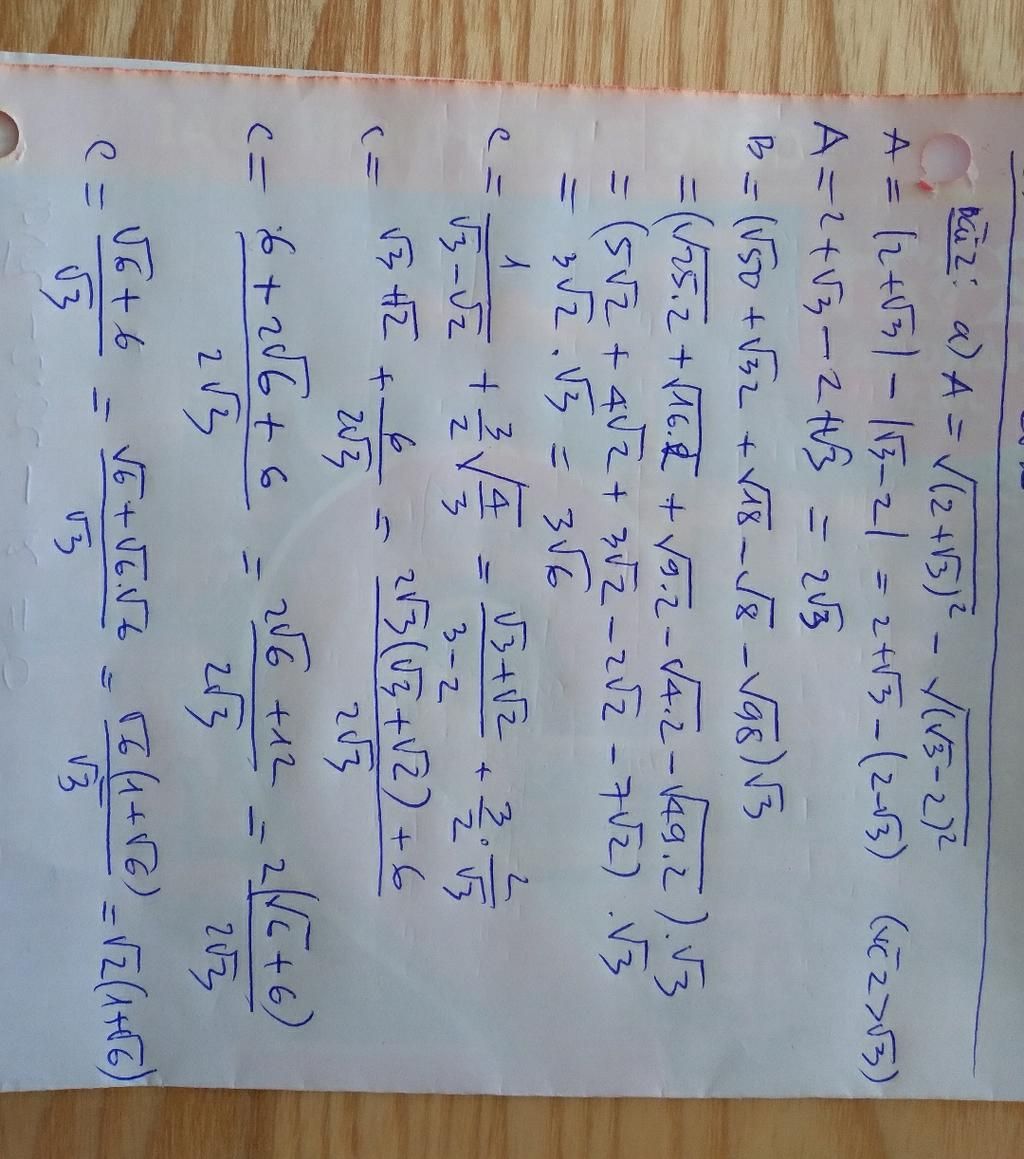 Bài 2: a) A = √(2+√3)² - √(√3-2)²
A = |2+√3| - |√3-2| = 2+√3-(2-√3) (vì 2>√3)
A = 2+√3-2+√3 = 2√3
B = (√50 + √32 + √18 - √8 - √98)√3
= (√25.2 + √16.2 + √9.2 - √4.2 - √49.2).√3
= (5√2 + 4√2 + 3√2 - 2√2 - 7√2).√3
= 3√2.√3 = 3√6
C = 1/(√3-√2) + 3/2 √(4/3) = (√3+√2)/(3-2) + 3/2 . 2/√3
C = √3+√2 + 6/(2√3) = (2√3(√3+√2)+6)/(2√3)
C = (6+2√6+6)/(2√3) = (2√6+12)/(2√3) = 2(√6+6)/(2√3)
C = (√6+6)/√3 = (√6+√6.√6)/√3 = √6(1+√6)/√3 = √2(1+√6)